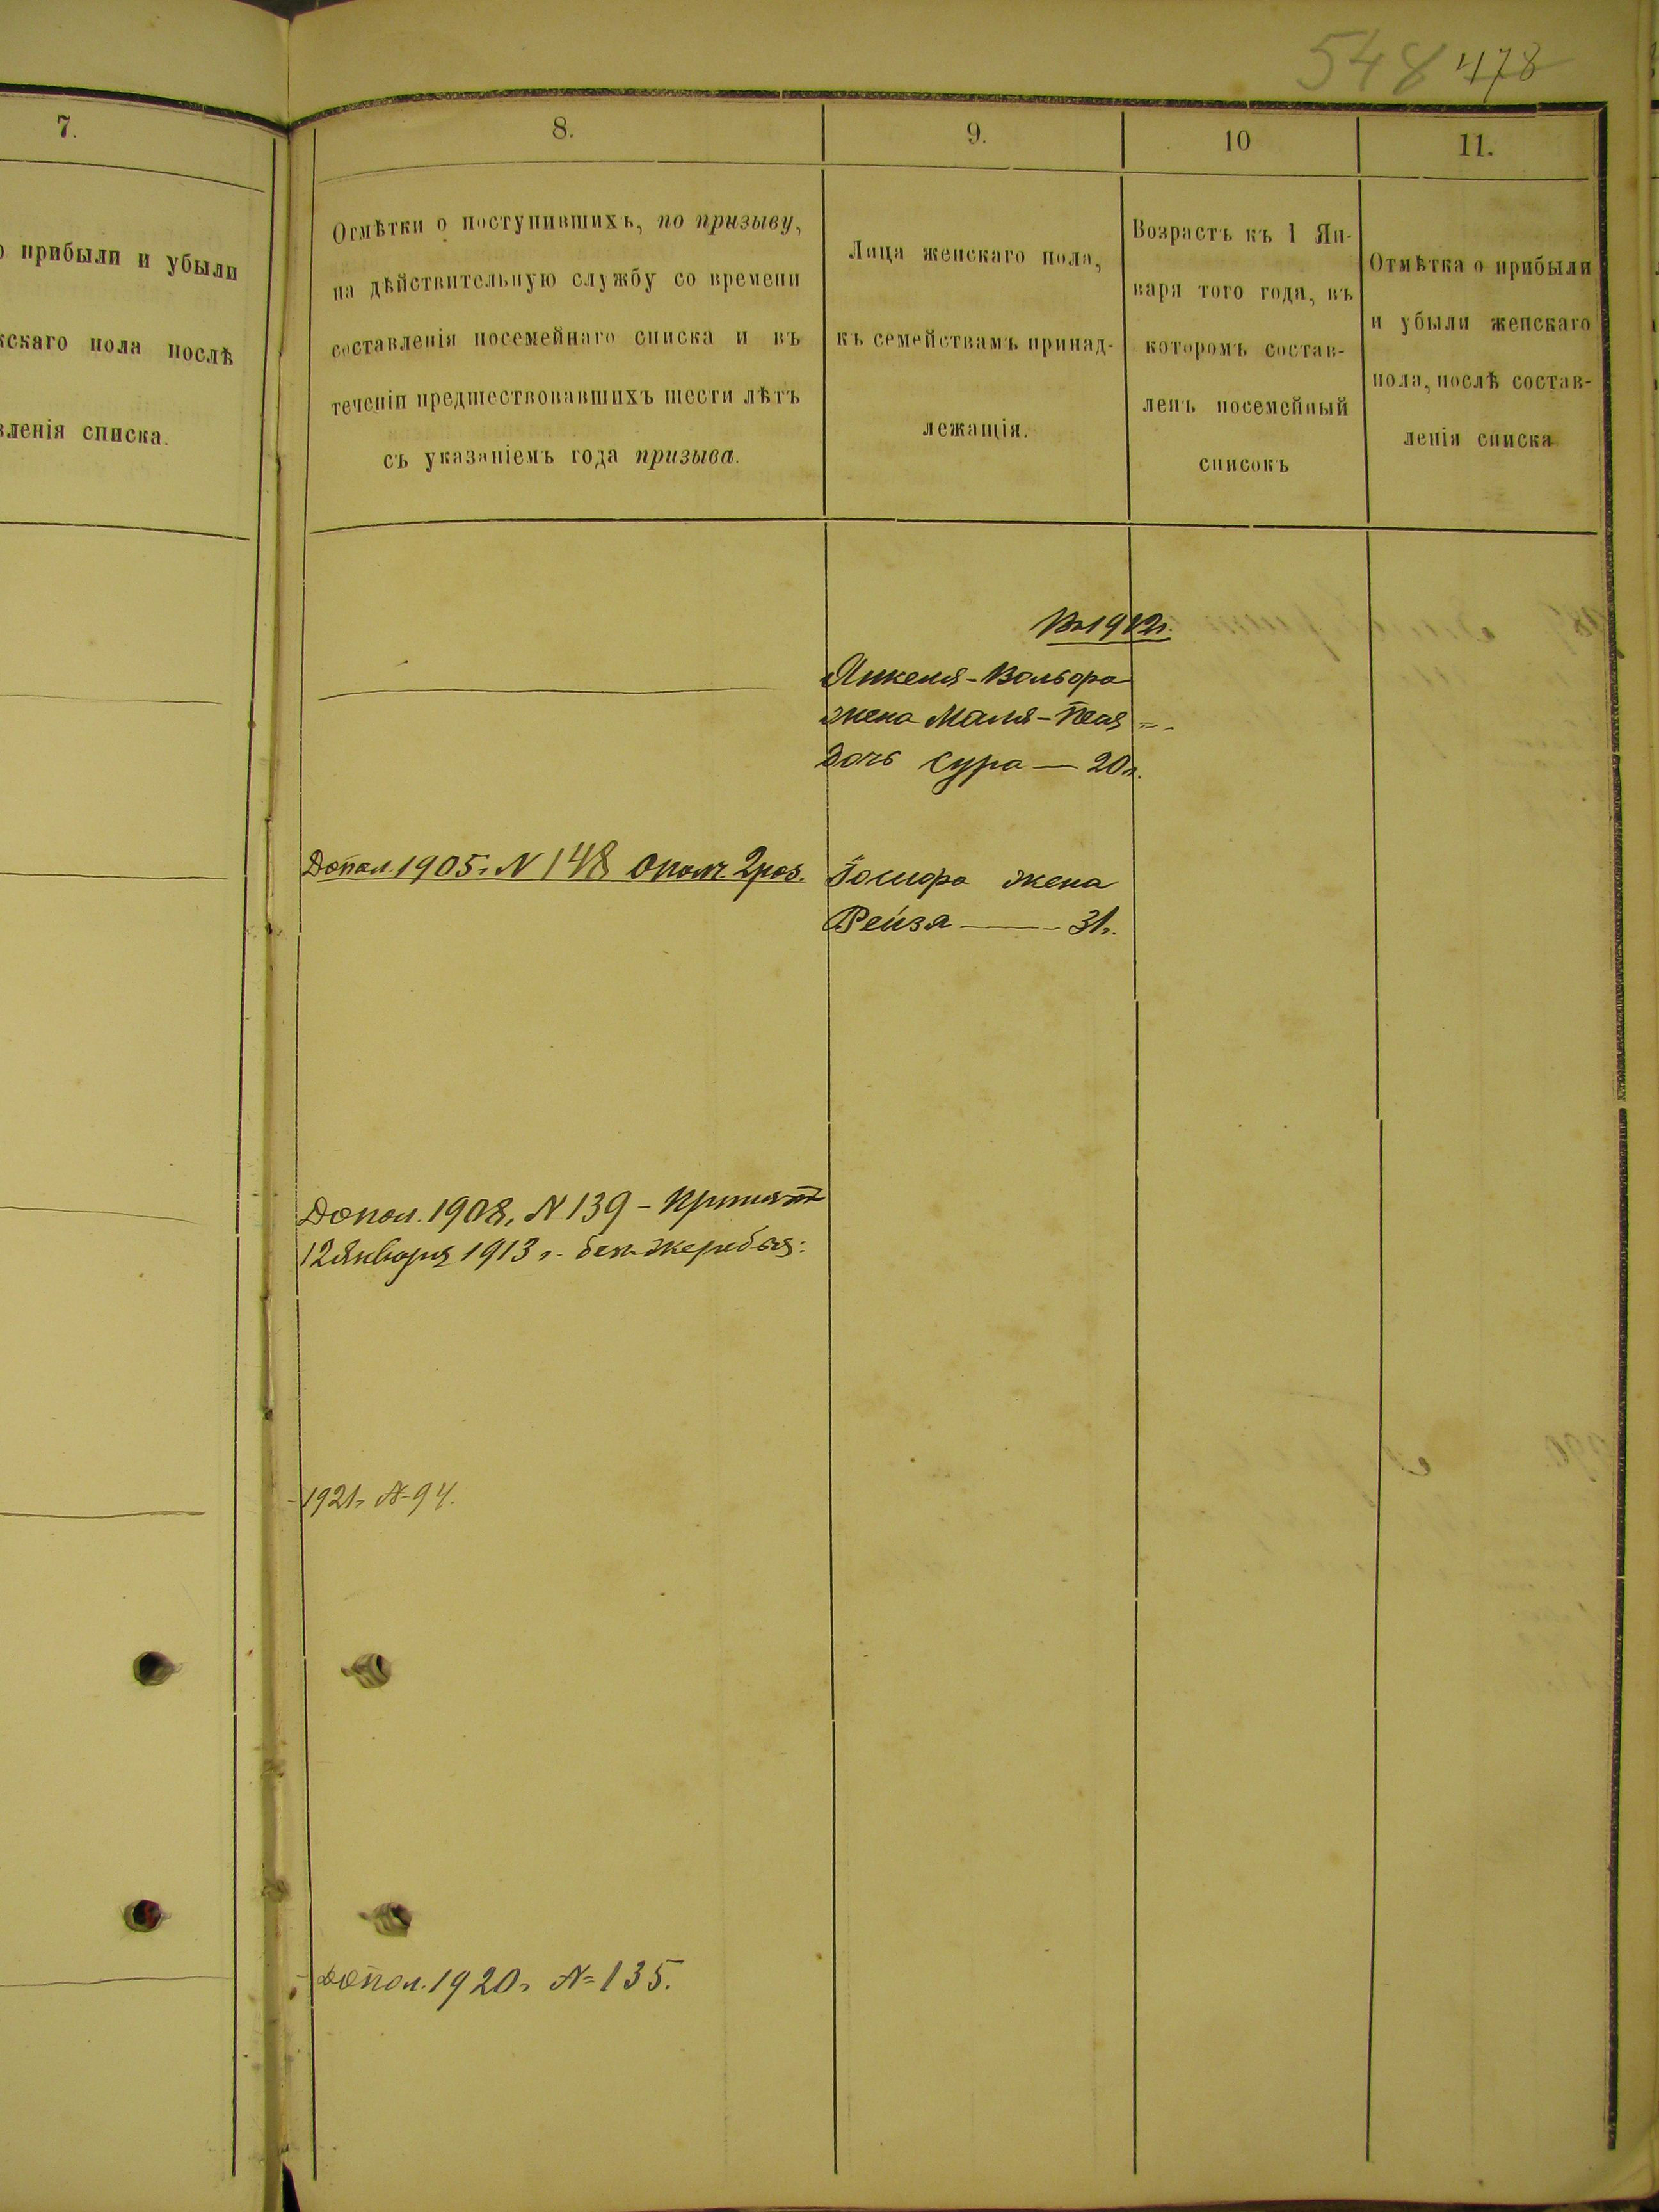 548 478
7.
8.
9.
10
11.
прибыли и убыли
скаго пола послѣ
вленія списка.
Отмѣтки о поступившихъ, по призыву,
на дѣйствительную службу со времени
составленія посемейнаго списка и въ
теченіи предшествовавшихъ шести лѣтъ
съ указаніемъ года призыва.
Лица женскаго пола,
къ семействамъ принад-
лежащія.
Возрастъ къ 1 Ян-
варя того года, въ
которомъ состав-
ленъ посемейный
списокъ
Отмѣтка о прибыли
и убыли женскаго
пола, послѣ состав-
ленія списка
Въ 1912 г.
Янкеля-Вольфа
жена Маля-Пея
Дочь Сура — 20 л.
Допол. 1905 г. N 148 Ополч. 2 раз.
Іосифа жена
Рейзя — 31 г.
Допол. 1908 г. N 139 – Принятъ
12 Января 1913 г. без жеребья:
1921 г. N= 94.
Допол. 1920 г. N= 135.